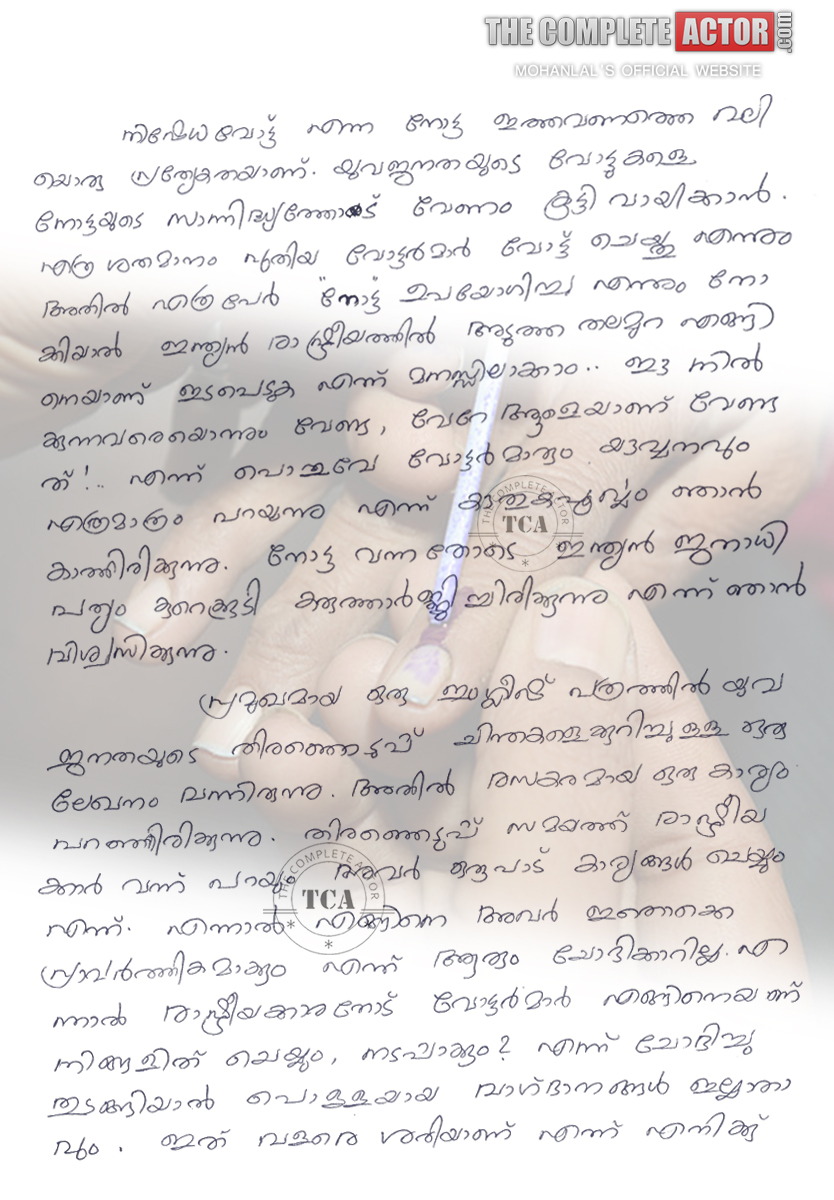 THE COMPLETE ACTOR.com
MOHANLAL'S OFFICIAL WEBSITE
നിഷേധവോട്ട് എന്ന നോട്ട ഇത്തവണത്തെ വലി
യൊരു പ്രത്യേകതയാണ്. യുവജനതയുടെ വോട്ടുകളെ
നോട്ടയുടെ സാന്നിദ്ധ്യത്തോട് വേണം കൂട്ടി വായിക്കാൻ.
എത്ര ശതമാനം പുതിയ വോട്ടർമാർ വോട്ട് ചെയ്തു എന്നും
അതിൽ എത്രപേർ "നോട്ട" ഉപയോഗിച്ചു എന്നും നോ
ക്കിയാൽ ഇന്ത്യൻ രാഷ്ട്രീയത്തിൽ അടുത്ത തലമുറ എങ്ങി
നെയാണ് ഇടപെടുക എന്ന് മനസ്സിലാക്കാം.. ഈ നിൽ
ക്കുന്നവരെയൊന്നും വേണ്ട, വേറേ ആളെയാണ് വേണ്ട
ത്!.. എന്ന് പൊതുവേ വോട്ടർമാരും യൗവ്വനവും
എത്രമാത്രം പറയുന്നു എന്ന് കാതുകൂർപ്പിച്ചു ഞാൻ
കാത്തിരിക്കുന്നു. നോട്ട വന്നതോടെ ഇന്ത്യൻ ജനാധി
പത്യം കുറെക്കൂടി കരുത്താർജ്ജിച്ചിരിക്കുന്നു എന്ന് ഞാൻ
വിശ്വസിക്കുന്നു.
പ്രമുഖമായ ഒരു ഇംഗ്ലീഷ് പത്രത്തിൽ യുവ
ജനതയുടെ തിരഞ്ഞെടുപ്പ് ചിന്തകളെക്കുറിച്ചുള്ള ഒരു
ലേഖനം വന്നിരുന്നു. അതിൽ രസകരമായ ഒരു കാര്യം
പറഞ്ഞിരിക്കുന്നു. തിരഞ്ഞെടുപ്പ് സമയത്ത് രാഷ്ട്രീയ
ക്കാർ വന്ന് പറയും അവർ ഒരുപാട് കാര്യങ്ങൾ ചെയ്യും
എന്ന്. എന്നാൽ എങ്ങിനെ അവർ ഇതൊക്കെ
പ്രാവർത്തികമാക്കും എന്ന് ആരും ചോദിക്കാറില്ല. എ
ന്നാൽ രാഷ്ട്രീയക്കാരനോട് വോട്ടർമാർ എങ്ങിനെയാണ്
നിങ്ങളിത് ചെയ്യും, നടപ്പാക്കും? എന്ന് ചോദിച്ചു
തുടങ്ങിയാൽ പൊള്ളയായ വാഗ്ദാനങ്ങൾ ഇല്ലാതാ
വും. ഇത് വളരെ ശരിയാണ് എന്ന് എനിക്ക്
THE COMPLETE ACTOR
TCA
THE COMPLETE ACTOR
TCA